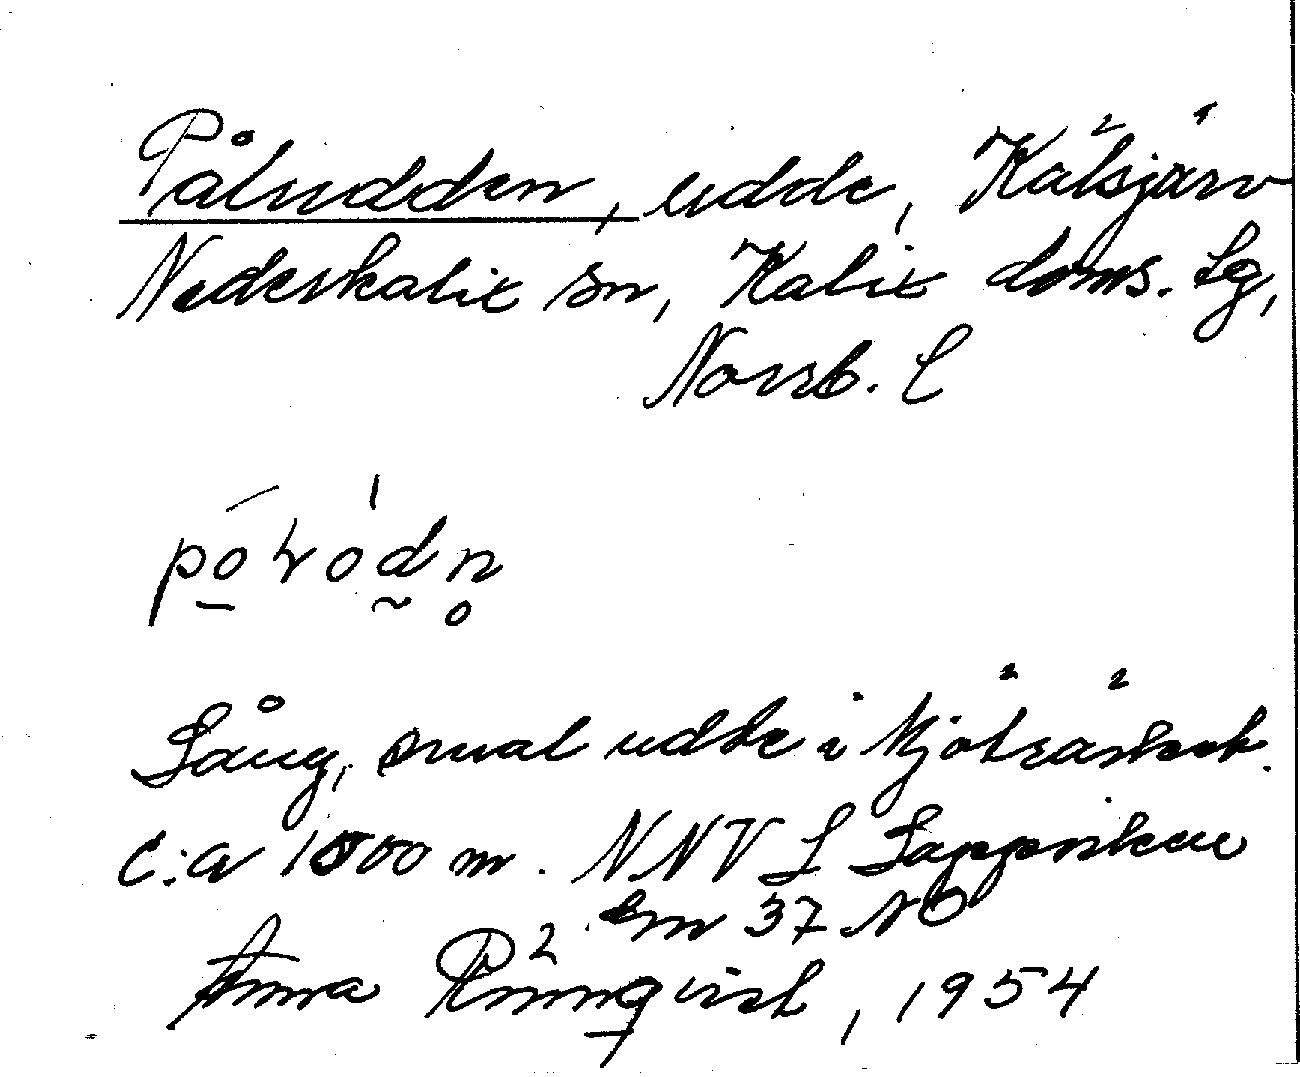 Påludden, udde, Kälsjärv
Nederkalix sn, Kalix doms. Lg,
Norrb. L
Lång, smal udde i Mjöträsket.
c:a 1500 m. NNV L Lappviken
Em 37 NO
Anna Rönnqvist, 1954